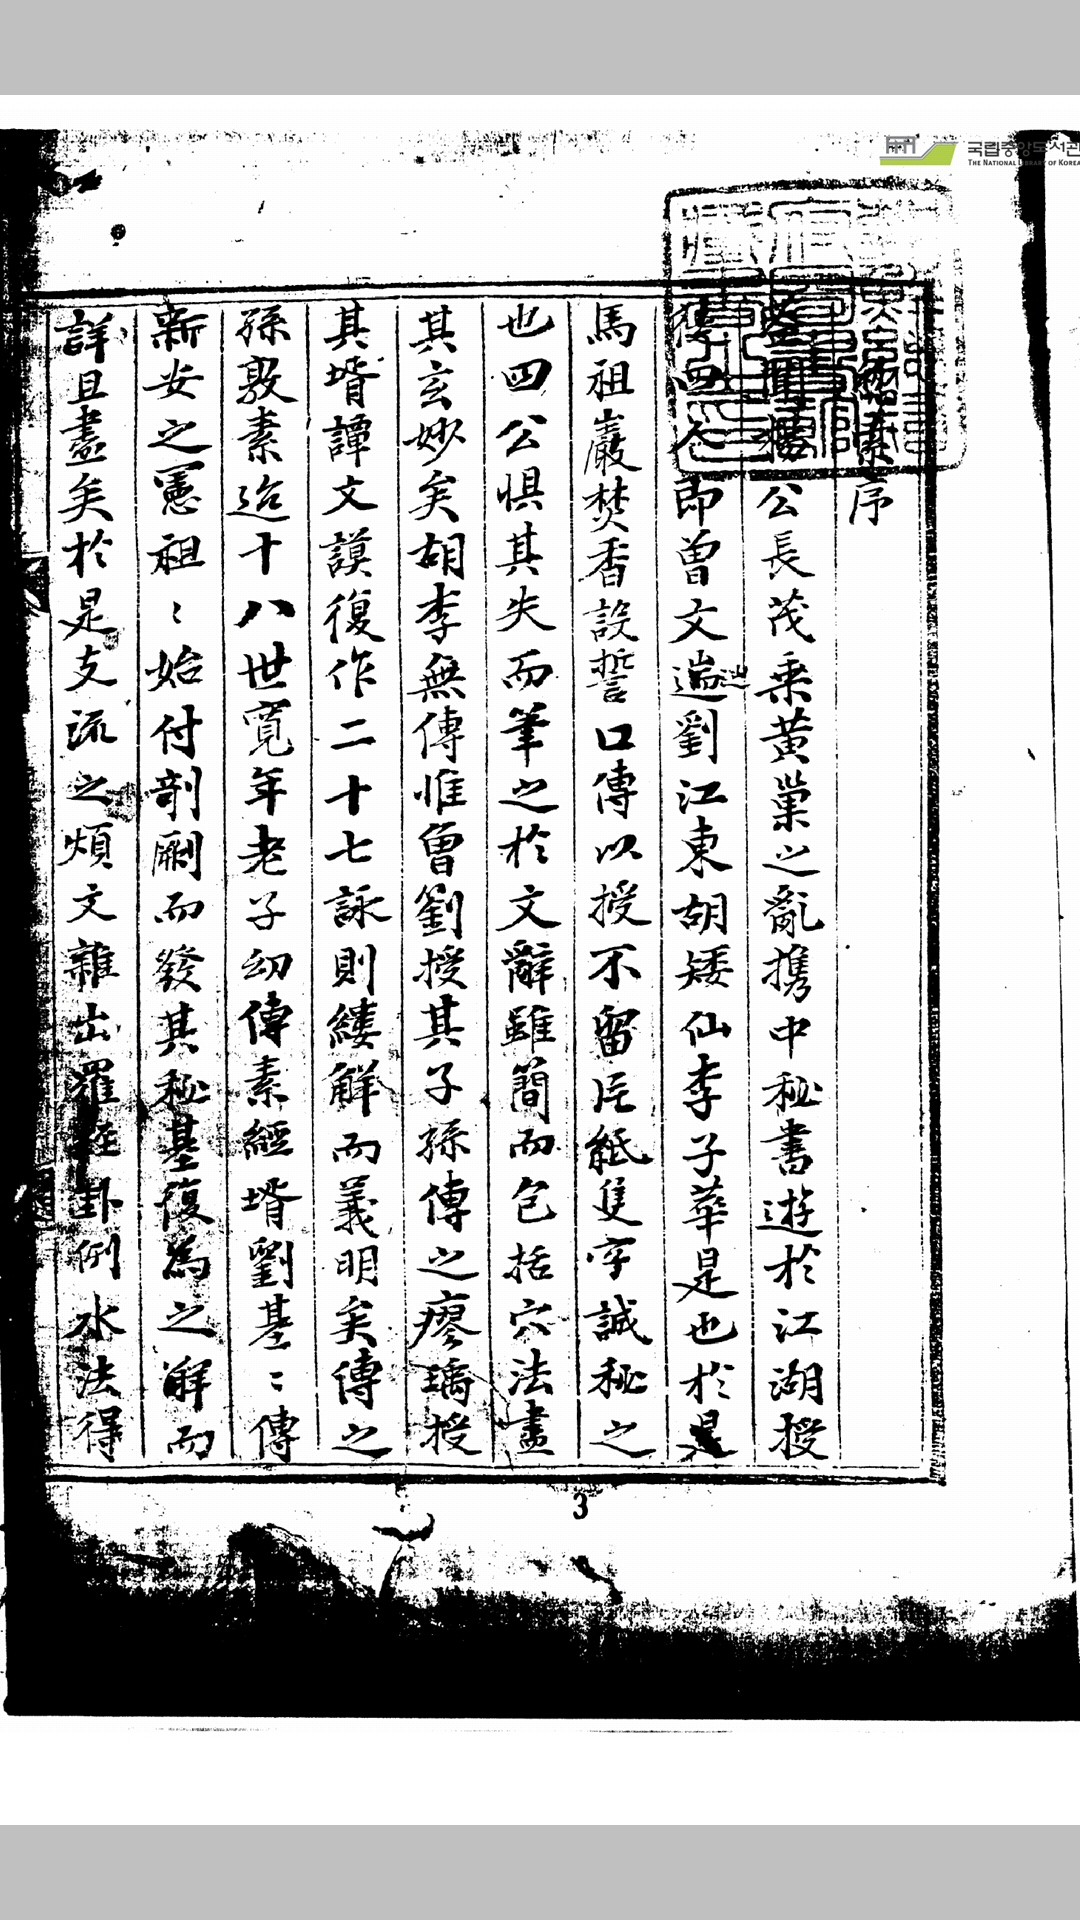 국립중앙도서관
THE NATIONAL LIBRARY OF KOREA
序
公長茂乘黃巢之亂携中秘書遊於江湖授
四人即曾文遄劉江東胡矮仙李子華是也於是
馬祖巖焚香設誓口傳以授不留片紙隻字誠秘之
也四公惧其失而筆之於文辭雖簡而包括穴法盡
其玄妙矣胡李無傳惟曾劉授其子孫傳之廖瑀授
其壻譚文謨復作二十七詠則縷解而義明矣傳之
孫敦素迨十八世寬年老子幼傳素經壻劉基〻傳
新安之憲祖〻始付剞劂而發其秘基復為之解而
詳且盡矣於是支流之煩文雜出羅經卦例水法得
3